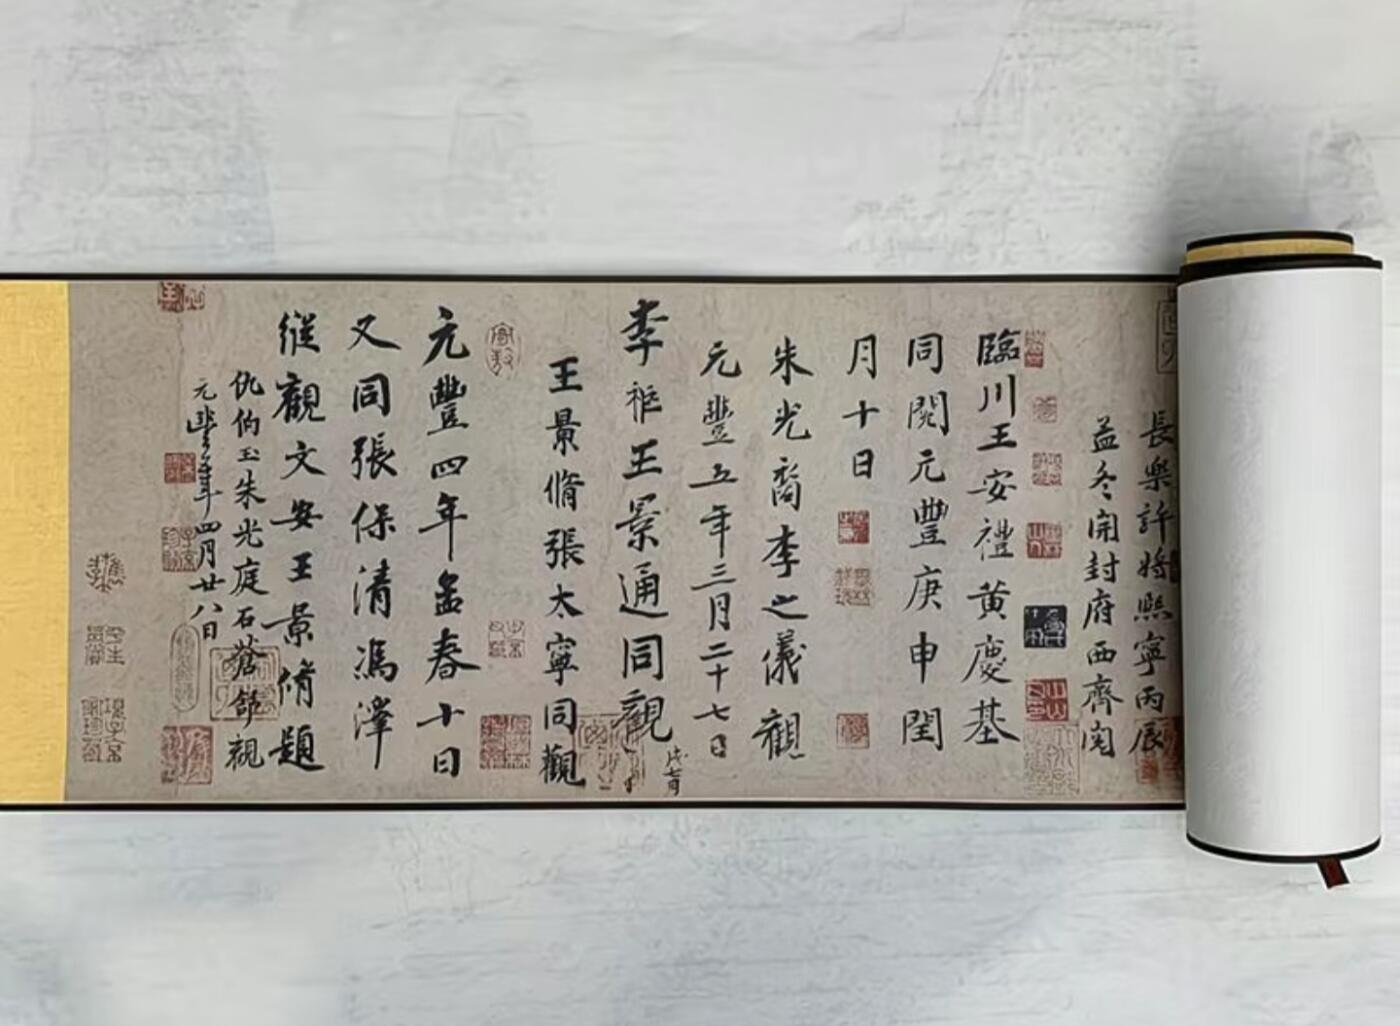 長樂許將熙寧丙辰
孟冬開封府西齊閱
臨川王安禮黃慶基
同閱元豐庚申閏
月十日
朱光裔李之儀觀
元豐五年三月二十七日
李秬王景通同觀
王景脩張太寧同觀
元豐四年孟春十日
又同張保清馮澤
縱觀文安王景脩題
仇伯玉朱光庭石蒼舒觀
元豐年四月廿八日